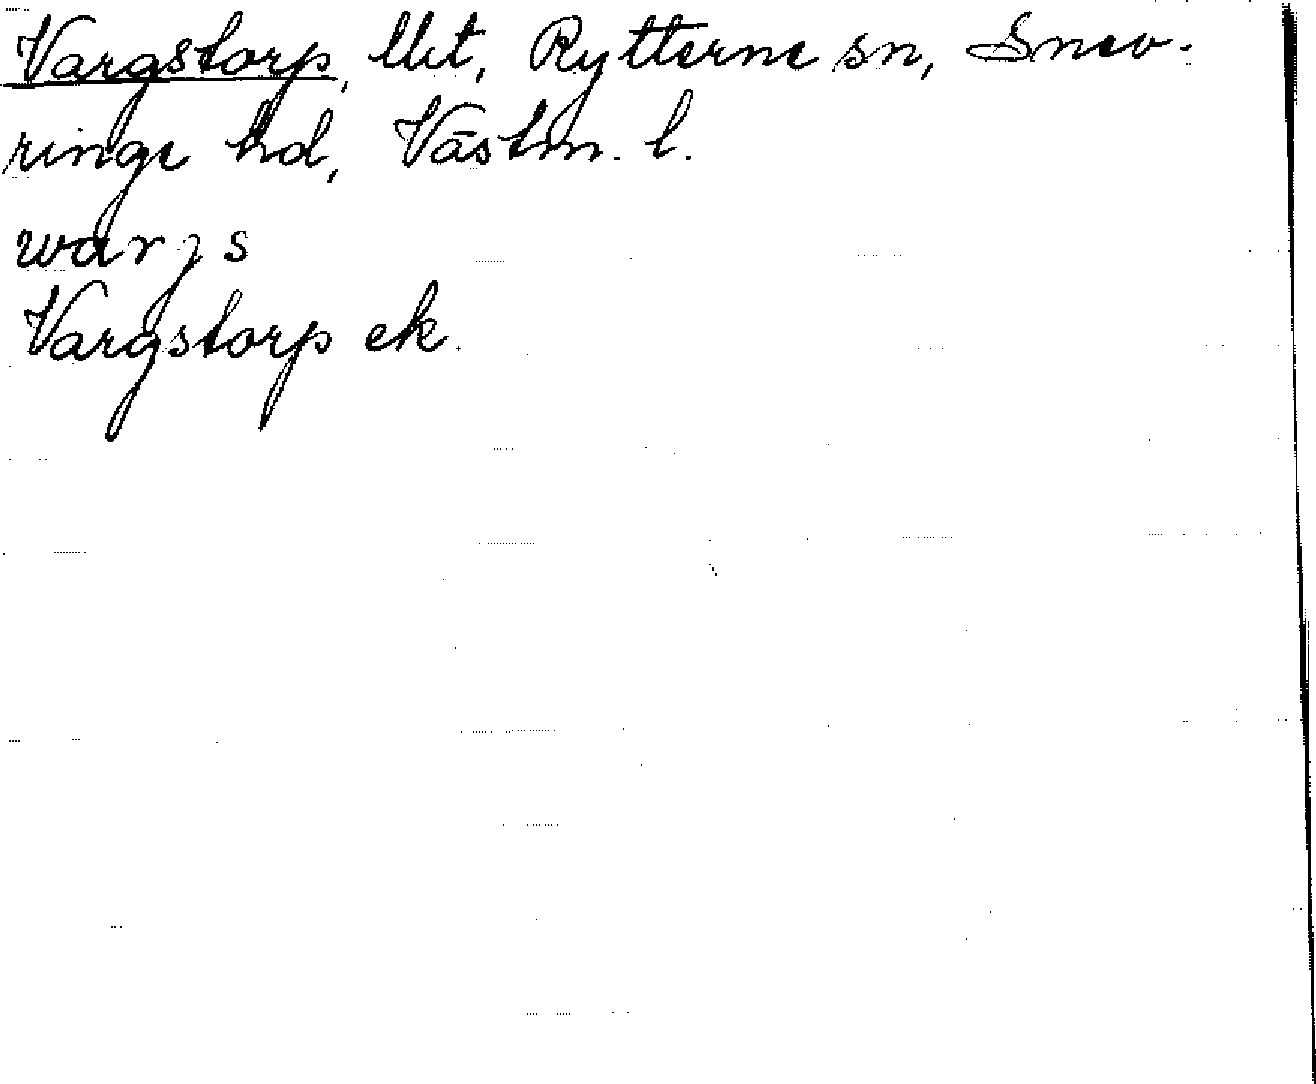 Vargstorp, Utt, Rytterne sn, Snev-
ringe hd, Västm. l.
warjs
Vargstorp ek.